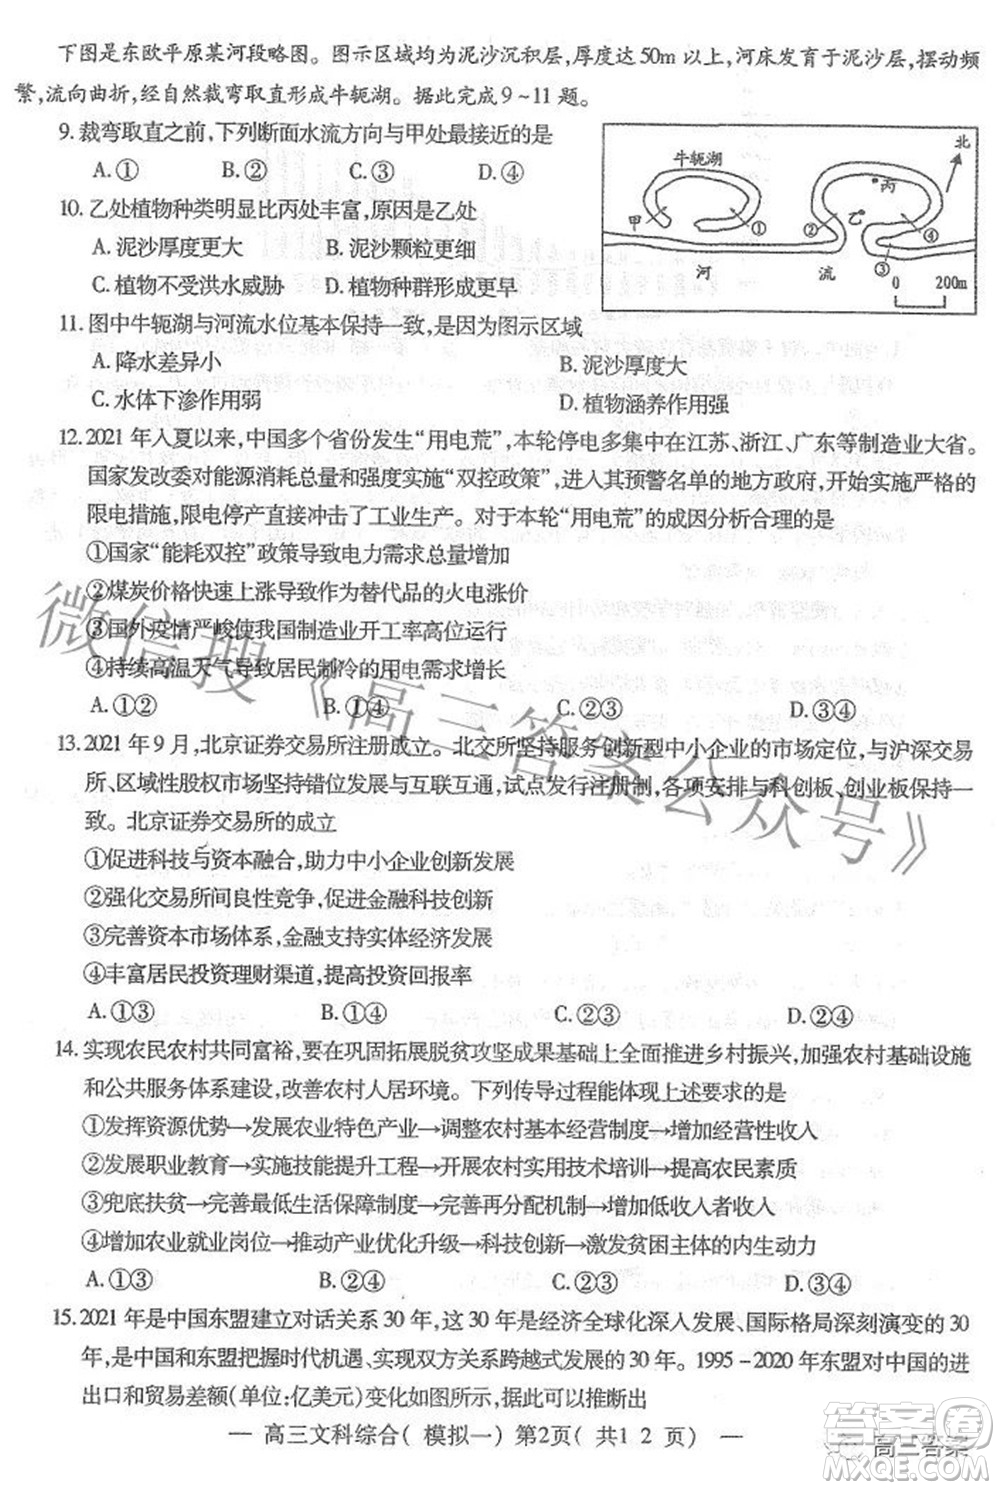 下图是东欧平原某河段略图。图示区域均为泥沙沉积层,厚度达50m以上,河床发育于泥沙层,摆动频
繁,流向曲折,经自然裁弯取直形成牛轭湖。据此完成9~11题。
9.裁弯取直之前,下列断面水流方向与甲处最接近的是
A.① B.② C.③ D.④
10.乙处植物种类明显比丙处丰富,原因是乙处
A.泥沙厚度更大 B.泥沙颗粒更细
C.植物不受洪水威胁 D.植物种群形成更早
11.图中牛轭湖与河流水位基本保持一致,是因为图示区域
A.降水差异小 B.泥沙厚度大
C.水体下渗作用弱 D.植物涵养作用强
牛轭湖
北
丙
甲
①
②
乙
④
③
河 流
0 200m
12.2021年入夏以来,中国多个省份发生“用电荒”,本轮停电多集中在江苏、浙江、广东等制造业大省。
国家发改委对能源消耗总量和强度实施“双控政策”,进入其预警名单的地方政府,开始实施严格的
限电措施,限电停产直接冲击了工业生产。对于本轮“用电荒”的成因分析合理的是
①国家“能耗双控”政策导致电力需求总量增加
②煤炭价格快速上涨导致作为替代品的火电涨价
③国外疫情严峻使我国制造业开工率高位运行
④持续高温天气导致居民制冷的用电需求增长
A.①② B.①④ C.②③ D.③④
13.2021年9月,北京证券交易所注册成立。北交所坚持服务创新型中小企业的市场定位,与沪深交易
所、区域性股权市场坚持错位发展与互联互通,试点发行注册制,各项安排与科创板、创业板保持一
致。北京证券交易所的成立
①促进科技与资本融合,助力中小企业创新发展
②强化交易所间良性竞争,促进金融科技创新
③完善资本市场体系,金融支持实体经济发展
④丰富居民投资理财渠道,提高投资回报率
A.①③ B.①④ C.②③ D.②④
14.实现农民农村共同富裕,要在巩固拓展脱贫攻坚成果基础上全面推进乡村振兴,加强农村基础设施
和公共服务体系建设,改善农村人居环境。下列传导过程能体现上述要求的是
①发挥资源优势→发展农业特色产业→调整农村基本经营制度→增加经营性收入
②发展职业教育→实施技能提升工程→开展农村实用技术培训→提高农民素质
③兜底扶贫→完善最低生活保障制度→完善再分配机制→增加低收入者收入
④增加农业就业岗位→推动产业优化升级→科技创新→激发贫困主体的内生动力
A.①③ B.②④ C.②③ D.③④
15.2021年是中国东盟建立对话关系30年,这30年是经济全球化深入发展、国际格局深刻演变的30
年,是中国和东盟把握时代机遇、实现双方关系跨越式发展的30年。1995-2020年东盟对中国的进
出口和贸易差额(单位:亿美元)变化如图所示,据此可以推断出
— 高三文科综合( 模拟一) 第2页( 共1 2 页) —
微信搜《高三答案公众号》
高三答案
答案圈
MXQE.COM